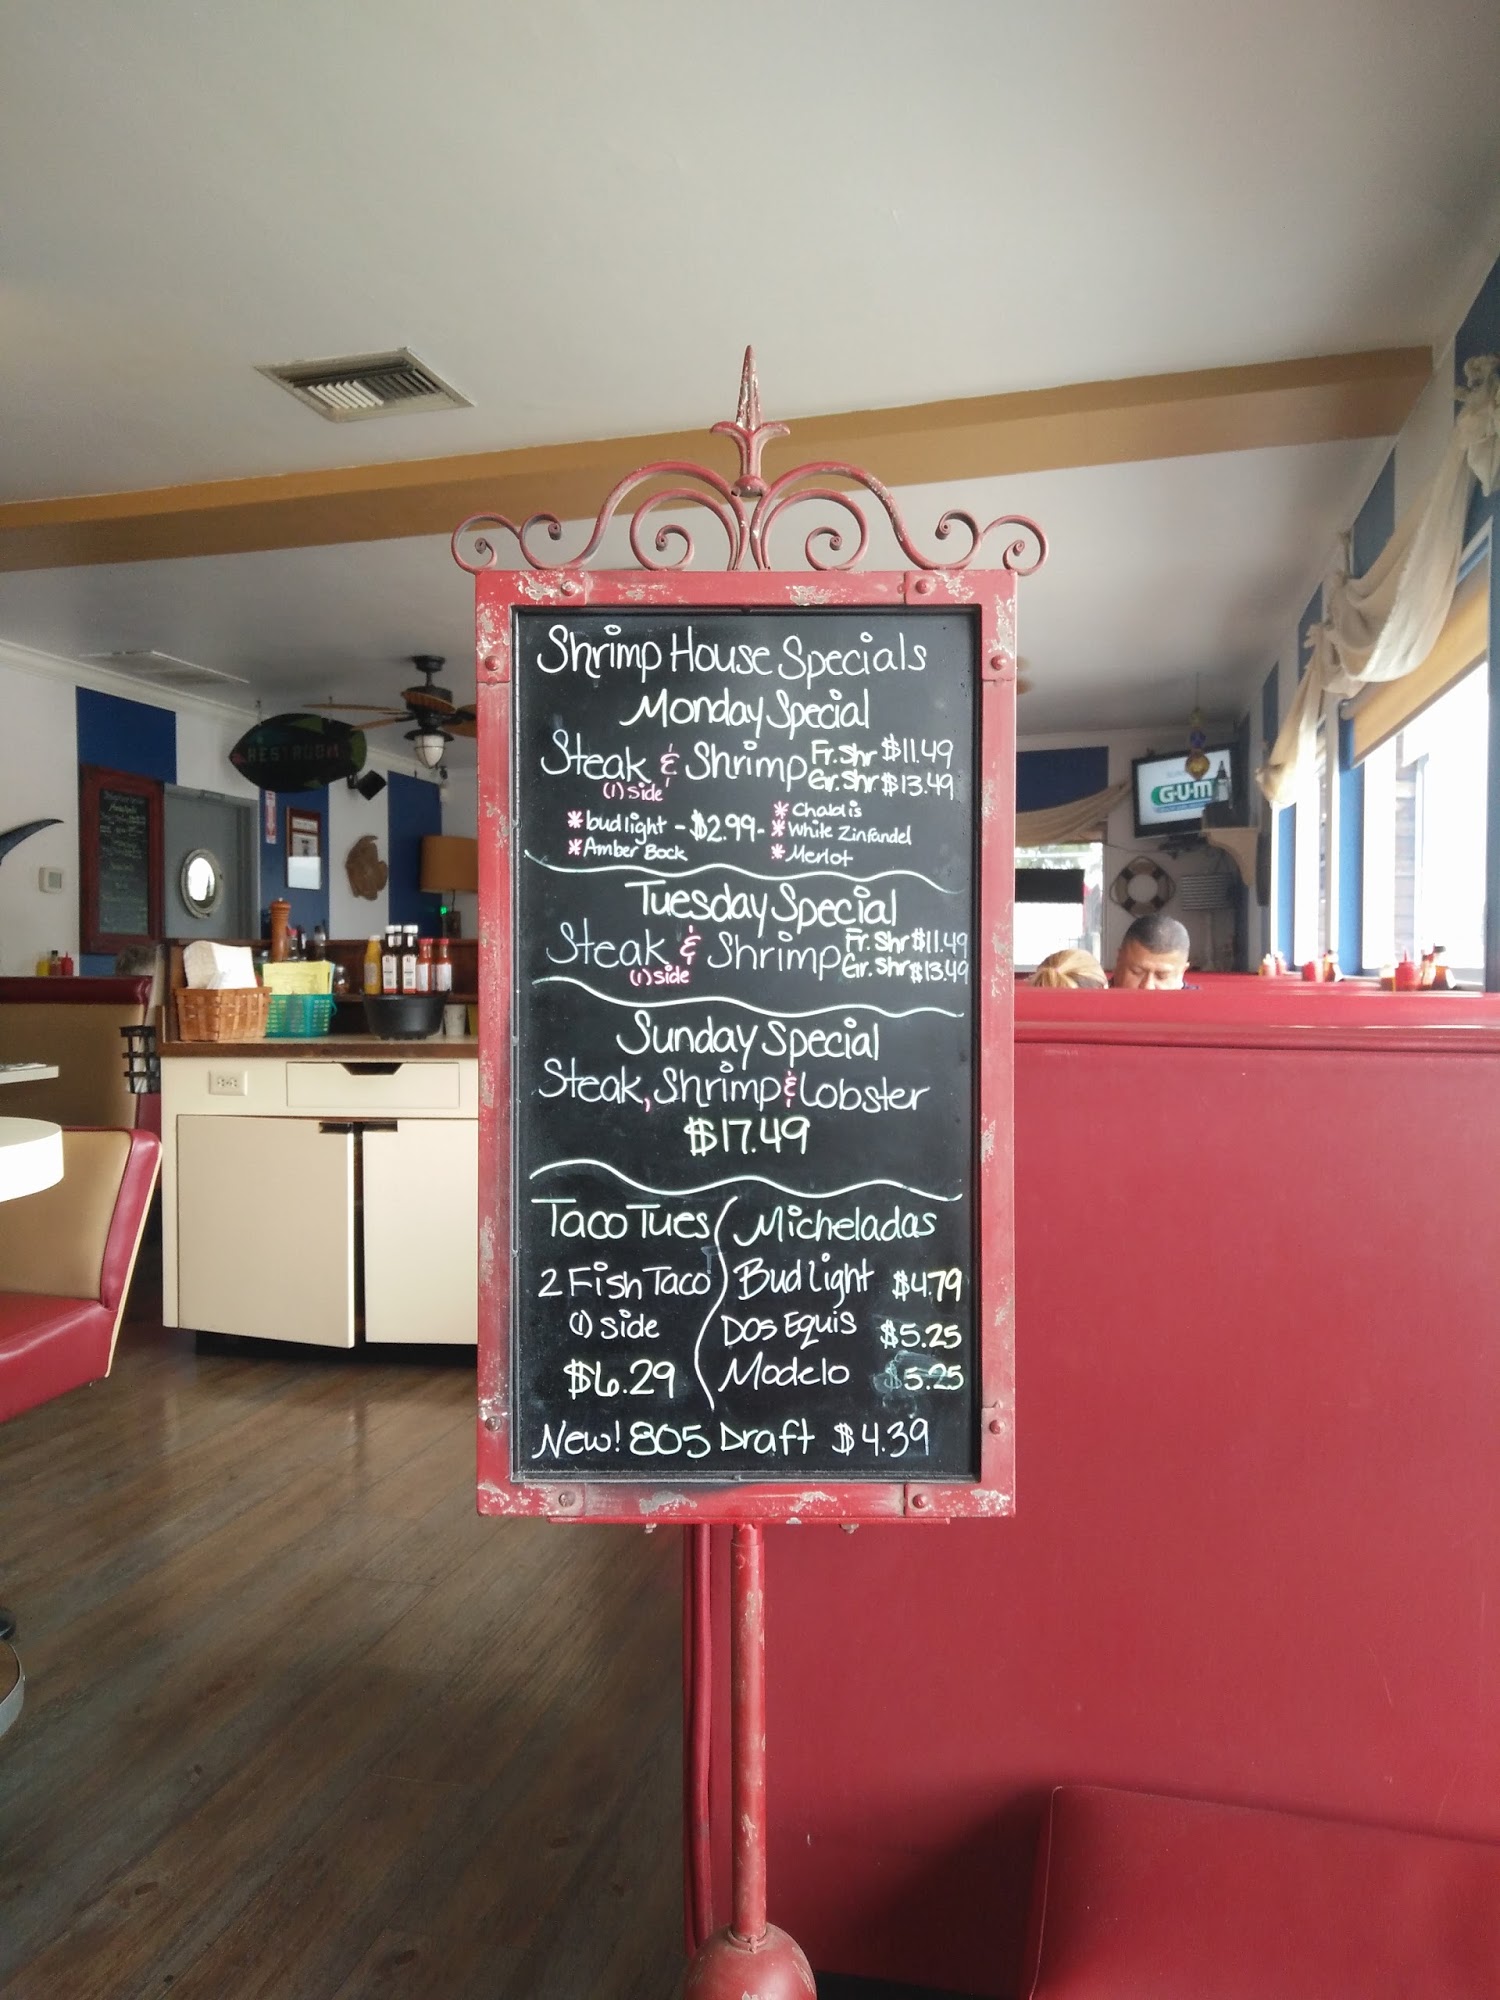 Shrimp House Specials
Monday Special
Steak & Shrimp Fr. Shr $11.49
Gr. Shr $13.49
(1) side
*budlight - $2.99 - *Chablis
*White Zinfandel
*Amber Bock *Merlot
Tuesday Special
Steak & Shrimp Fr. Shr $11.49
Gr. Shr $13.49
(1) side
Sunday Special
Steak, Shrimp & Lobster
$17.49
Taco Tues
2 Fish Taco
(1) side
$6.29
Micheladas
Bud Light $4.79
Dos Equis $5.25
Modelo $5.25
New! 805 Draft $4.39
RESTROOM
G·U·M